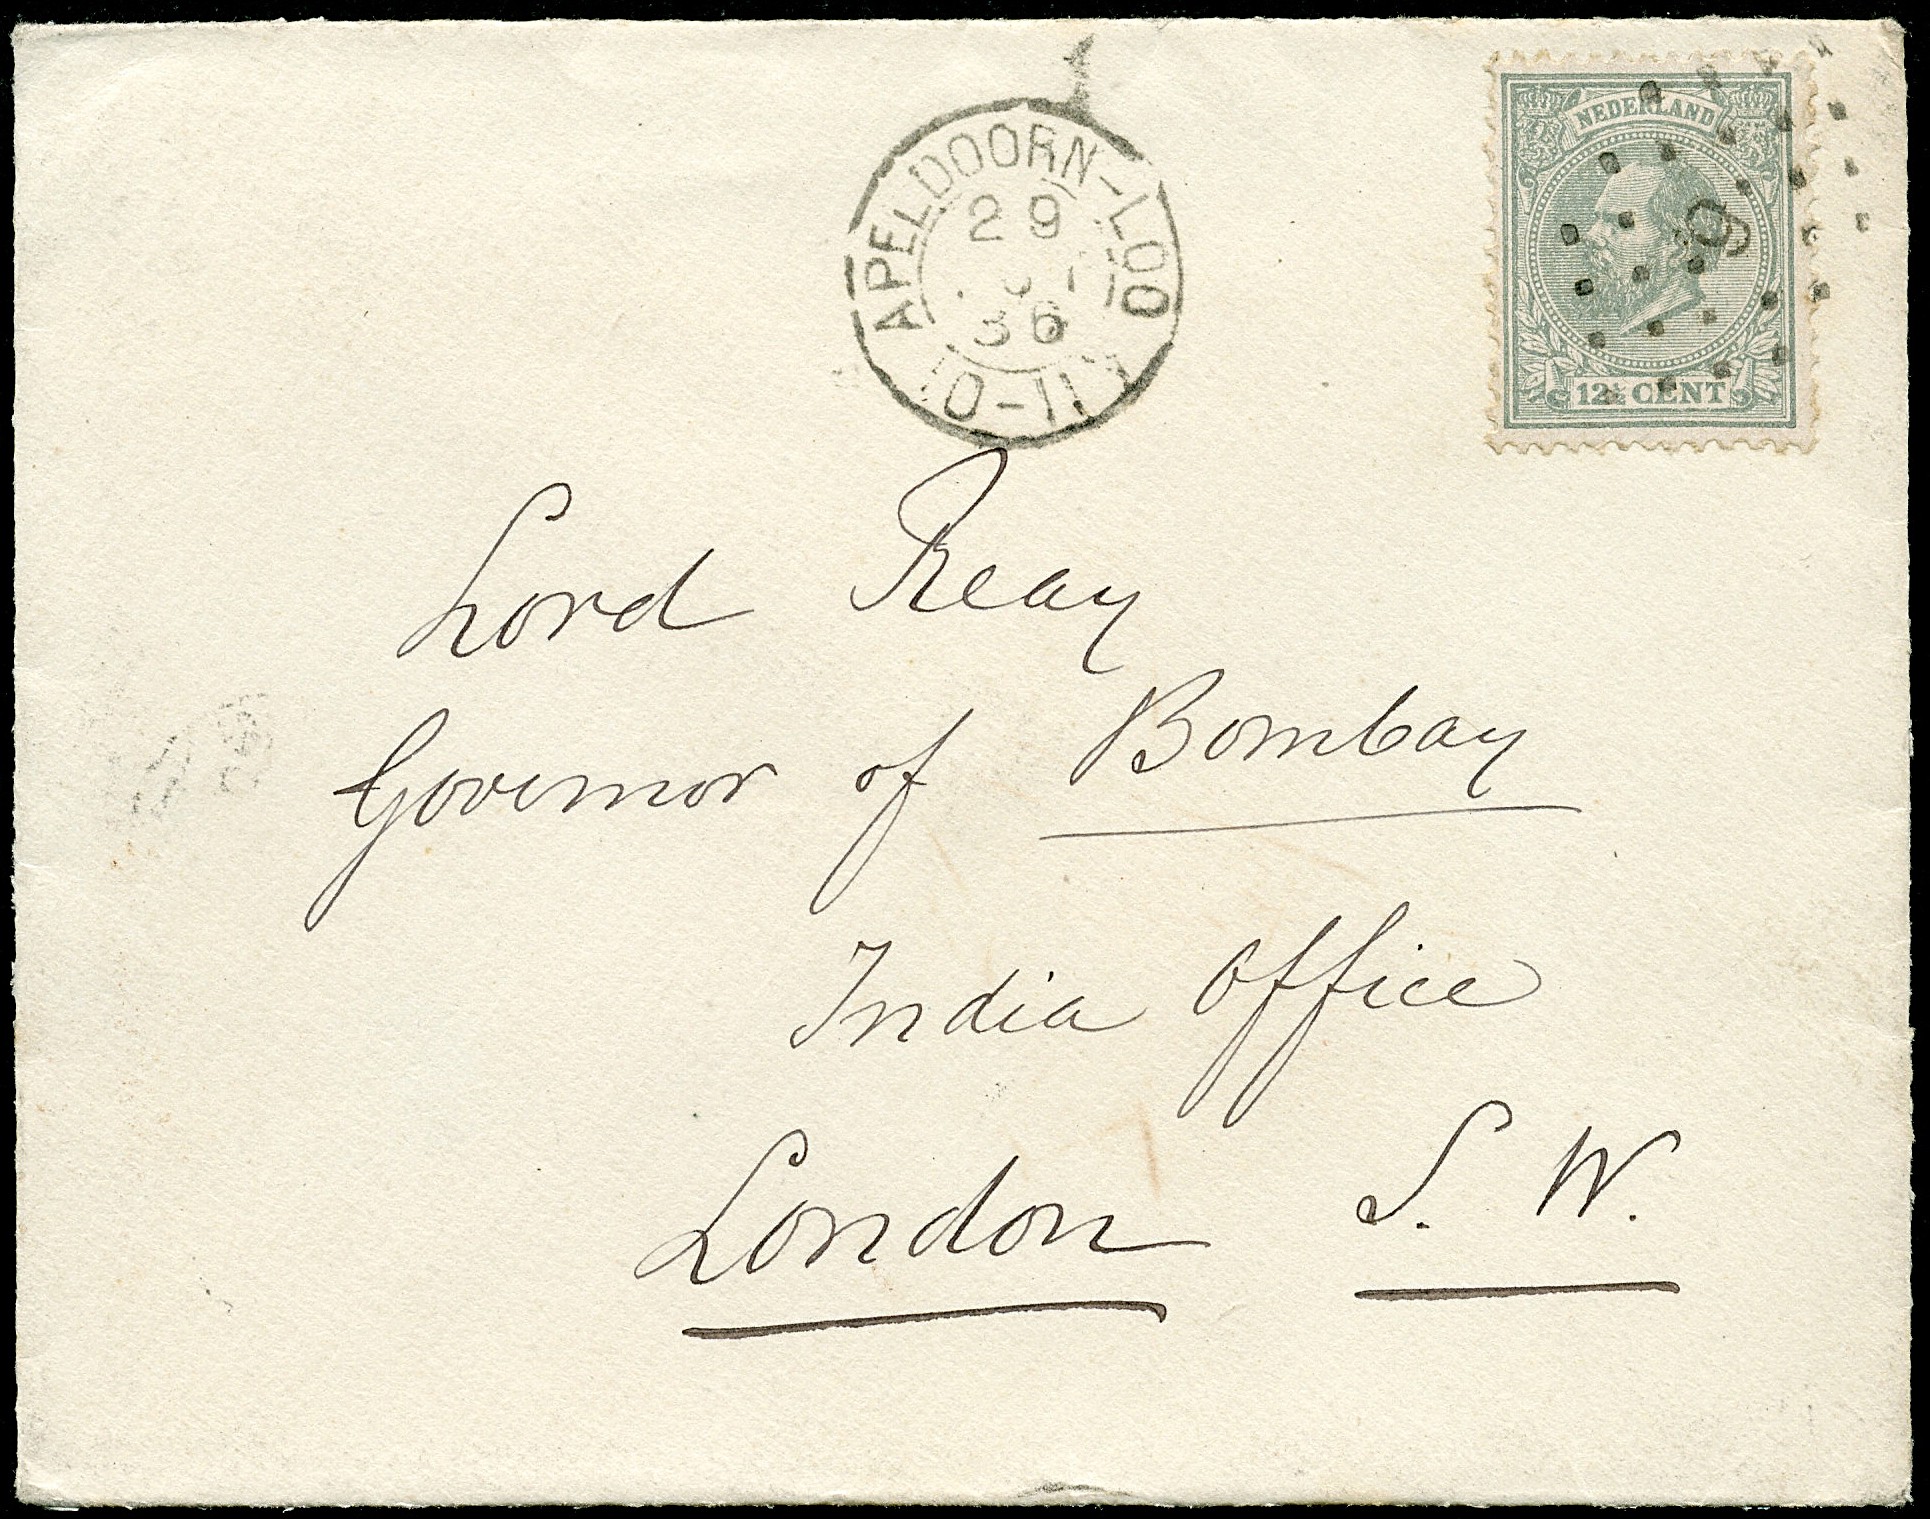 APELDOORN-LOO
29
36
10-11V
NEDERLAND
9
12½ CENT
Lord Reay
Governor of Bombay
India Office
London S. W.